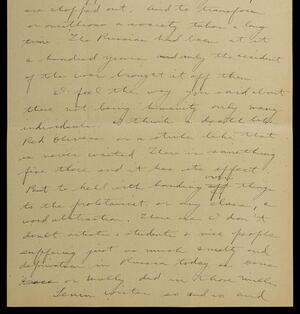 are chopped out. And to transform
or overthrow a society takes a long
time. The Russian had been at it
a hundred years and only the accident
of the war brought it off then.
I feel the way you said about
there not being humanity only many
individuals. I think a death like
Red Oliver's in a strike like that
is never wasted. There is something
fine there and it has its effect.
But to hell with handing over things
to the proletariat or any class, a
word abstraction. There are I don't
doubt artists, students & nice people
suffering just as much smelt and
in Russia today as
or really did in those mills.
Lenin writes so and so and